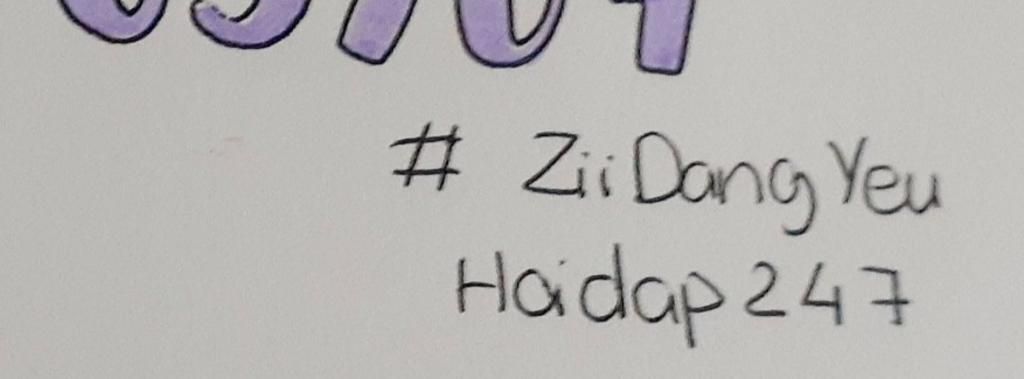 # ZiiDangYeu
Haidap247